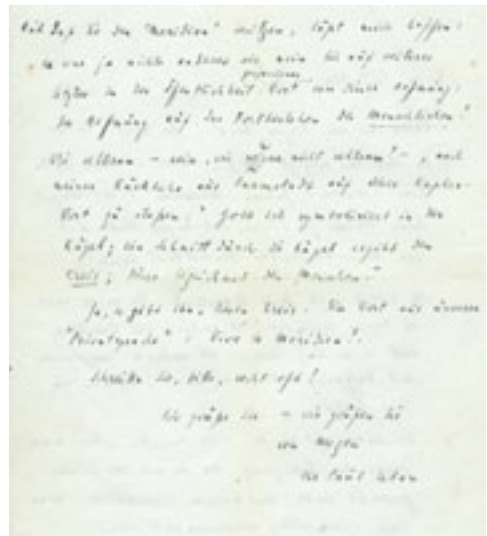 daß Sie den "Meridian" läßt mich hoffen:
es war ja nichts anderes als mein bis auf weiteres
letztes in der Öffentlichkeit gesprochenes Wort von dieser Hoffnung:
der Hoffnung auf das Fortbestehen des Menschlichen!
Wie seltsam – nein, wie nicht seltsam! –, nach
meiner Rückkehr aus Darmstadt auf dieses Kepler-
Wort zu stoßen: "Gott ist symbolisiert in der
Kugel; ein Schnitt durch die Kugel ergibt den
Kreis; dieser bezeichnet den Menschen."
Ja, es gibt ihn, diesen Kreis. Ein Wort aus unserer
"Privatsprache": Vive le méridien!
Schreiben Sie, bitte, recht oft!
Ich grüße Sie – wir grüßen Sie
von Herzen
Ihr Paul Celan